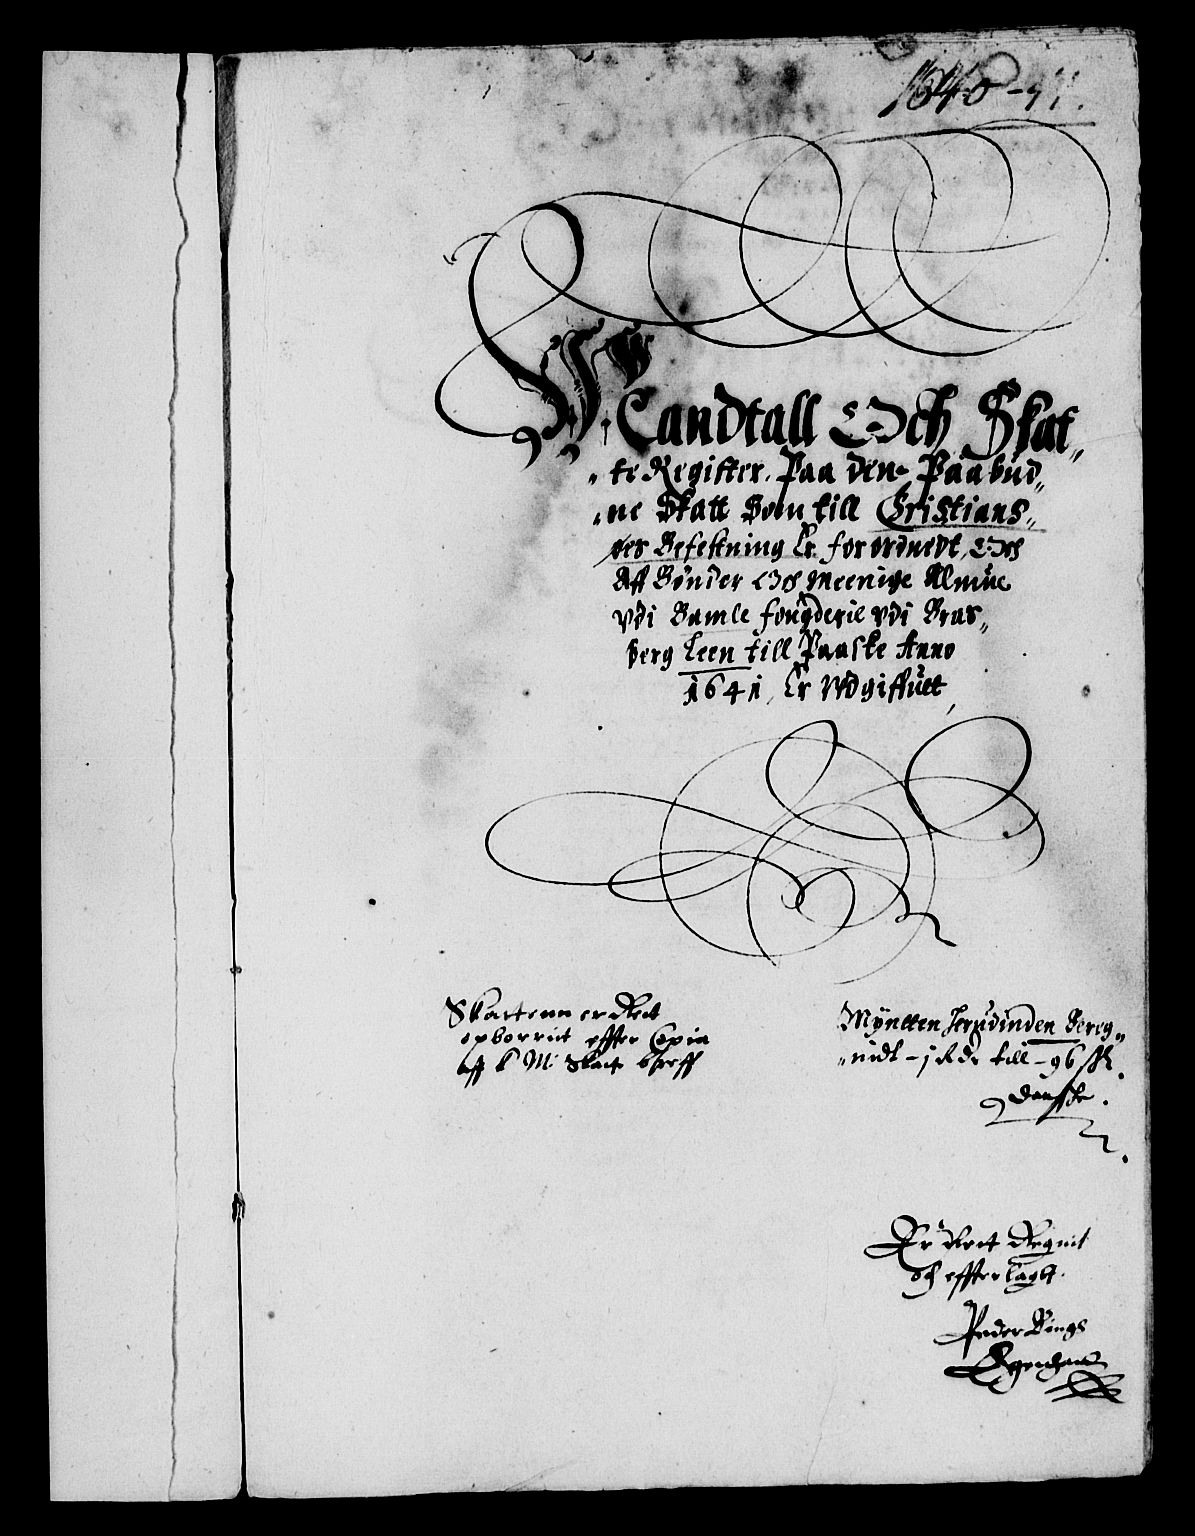 1640-41.
Mandtall Och Skat„
„te Register. Paa den Paabud„
„ne Skatt Som till Cristians„
„ses Befestning Er forordnedt, Och
Aff Bønder Och meenige Almue
Vdi Bamle fougderie vdi Bras„
berg Leen till Paaske Anno
1641, Er Wdgiffuet
Skattenn er Ret
opborrit effter Copia
aff K M: Skatt breff
Myntten herudinden Bereg„
„nidt - 1 Rdr till - 96 sk.
danske.
Er Rett Regnit
och efftterlagt.
Peder
Egenhand